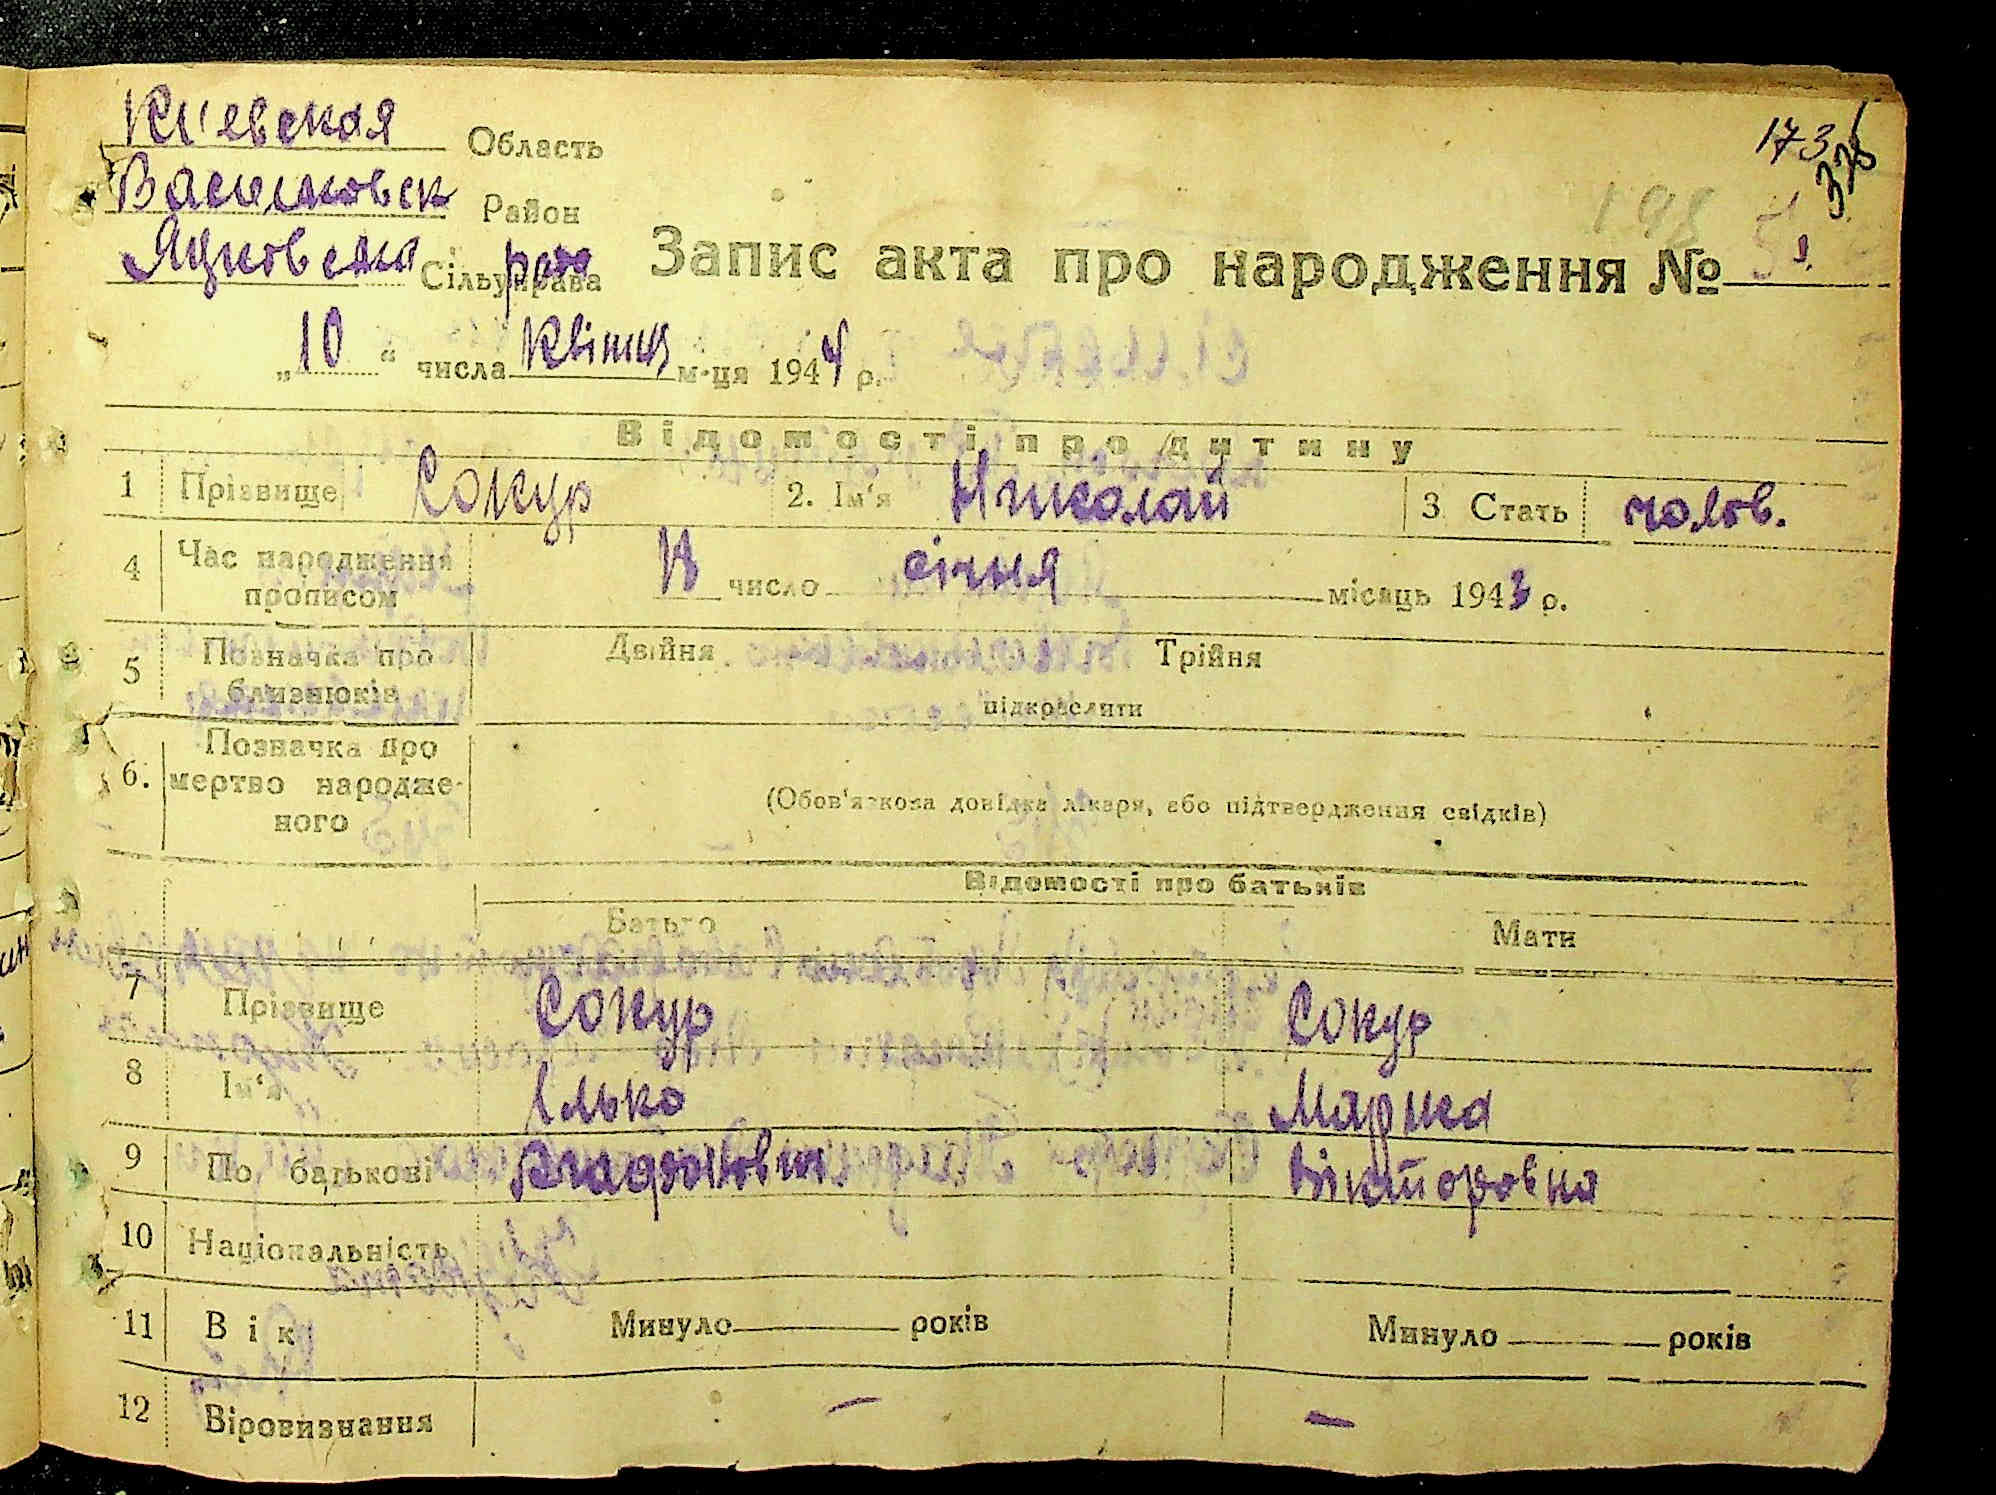 Киевская Область
173
Васильковск Район
Яцковская Сільуправа рада
Запис акта про народження № 51
„10“ числа Квітня м-ця 1944 р.
Відомості про дитину
1 Прізвище Сокур 2. Ім'я Николай 3 Стать чолов.
4 Час народження прописом 18 число січня місяць 1943 р.
5 Позначка про близнюків Двійня Трійня
підкреслити
6. Позначка про мертво народже-
ного (Обов'язкова довідка лікаря, або підтвердження свідків)
Відомості про батьків
Батько Мати
7 Прізвище Сокур Сокур
8 Ім'я Ілько Марика
9 По батькові Агафонович Вікторовна
10 Національність
11 Вік Минуло років Минуло років
12 Віровизнання — —